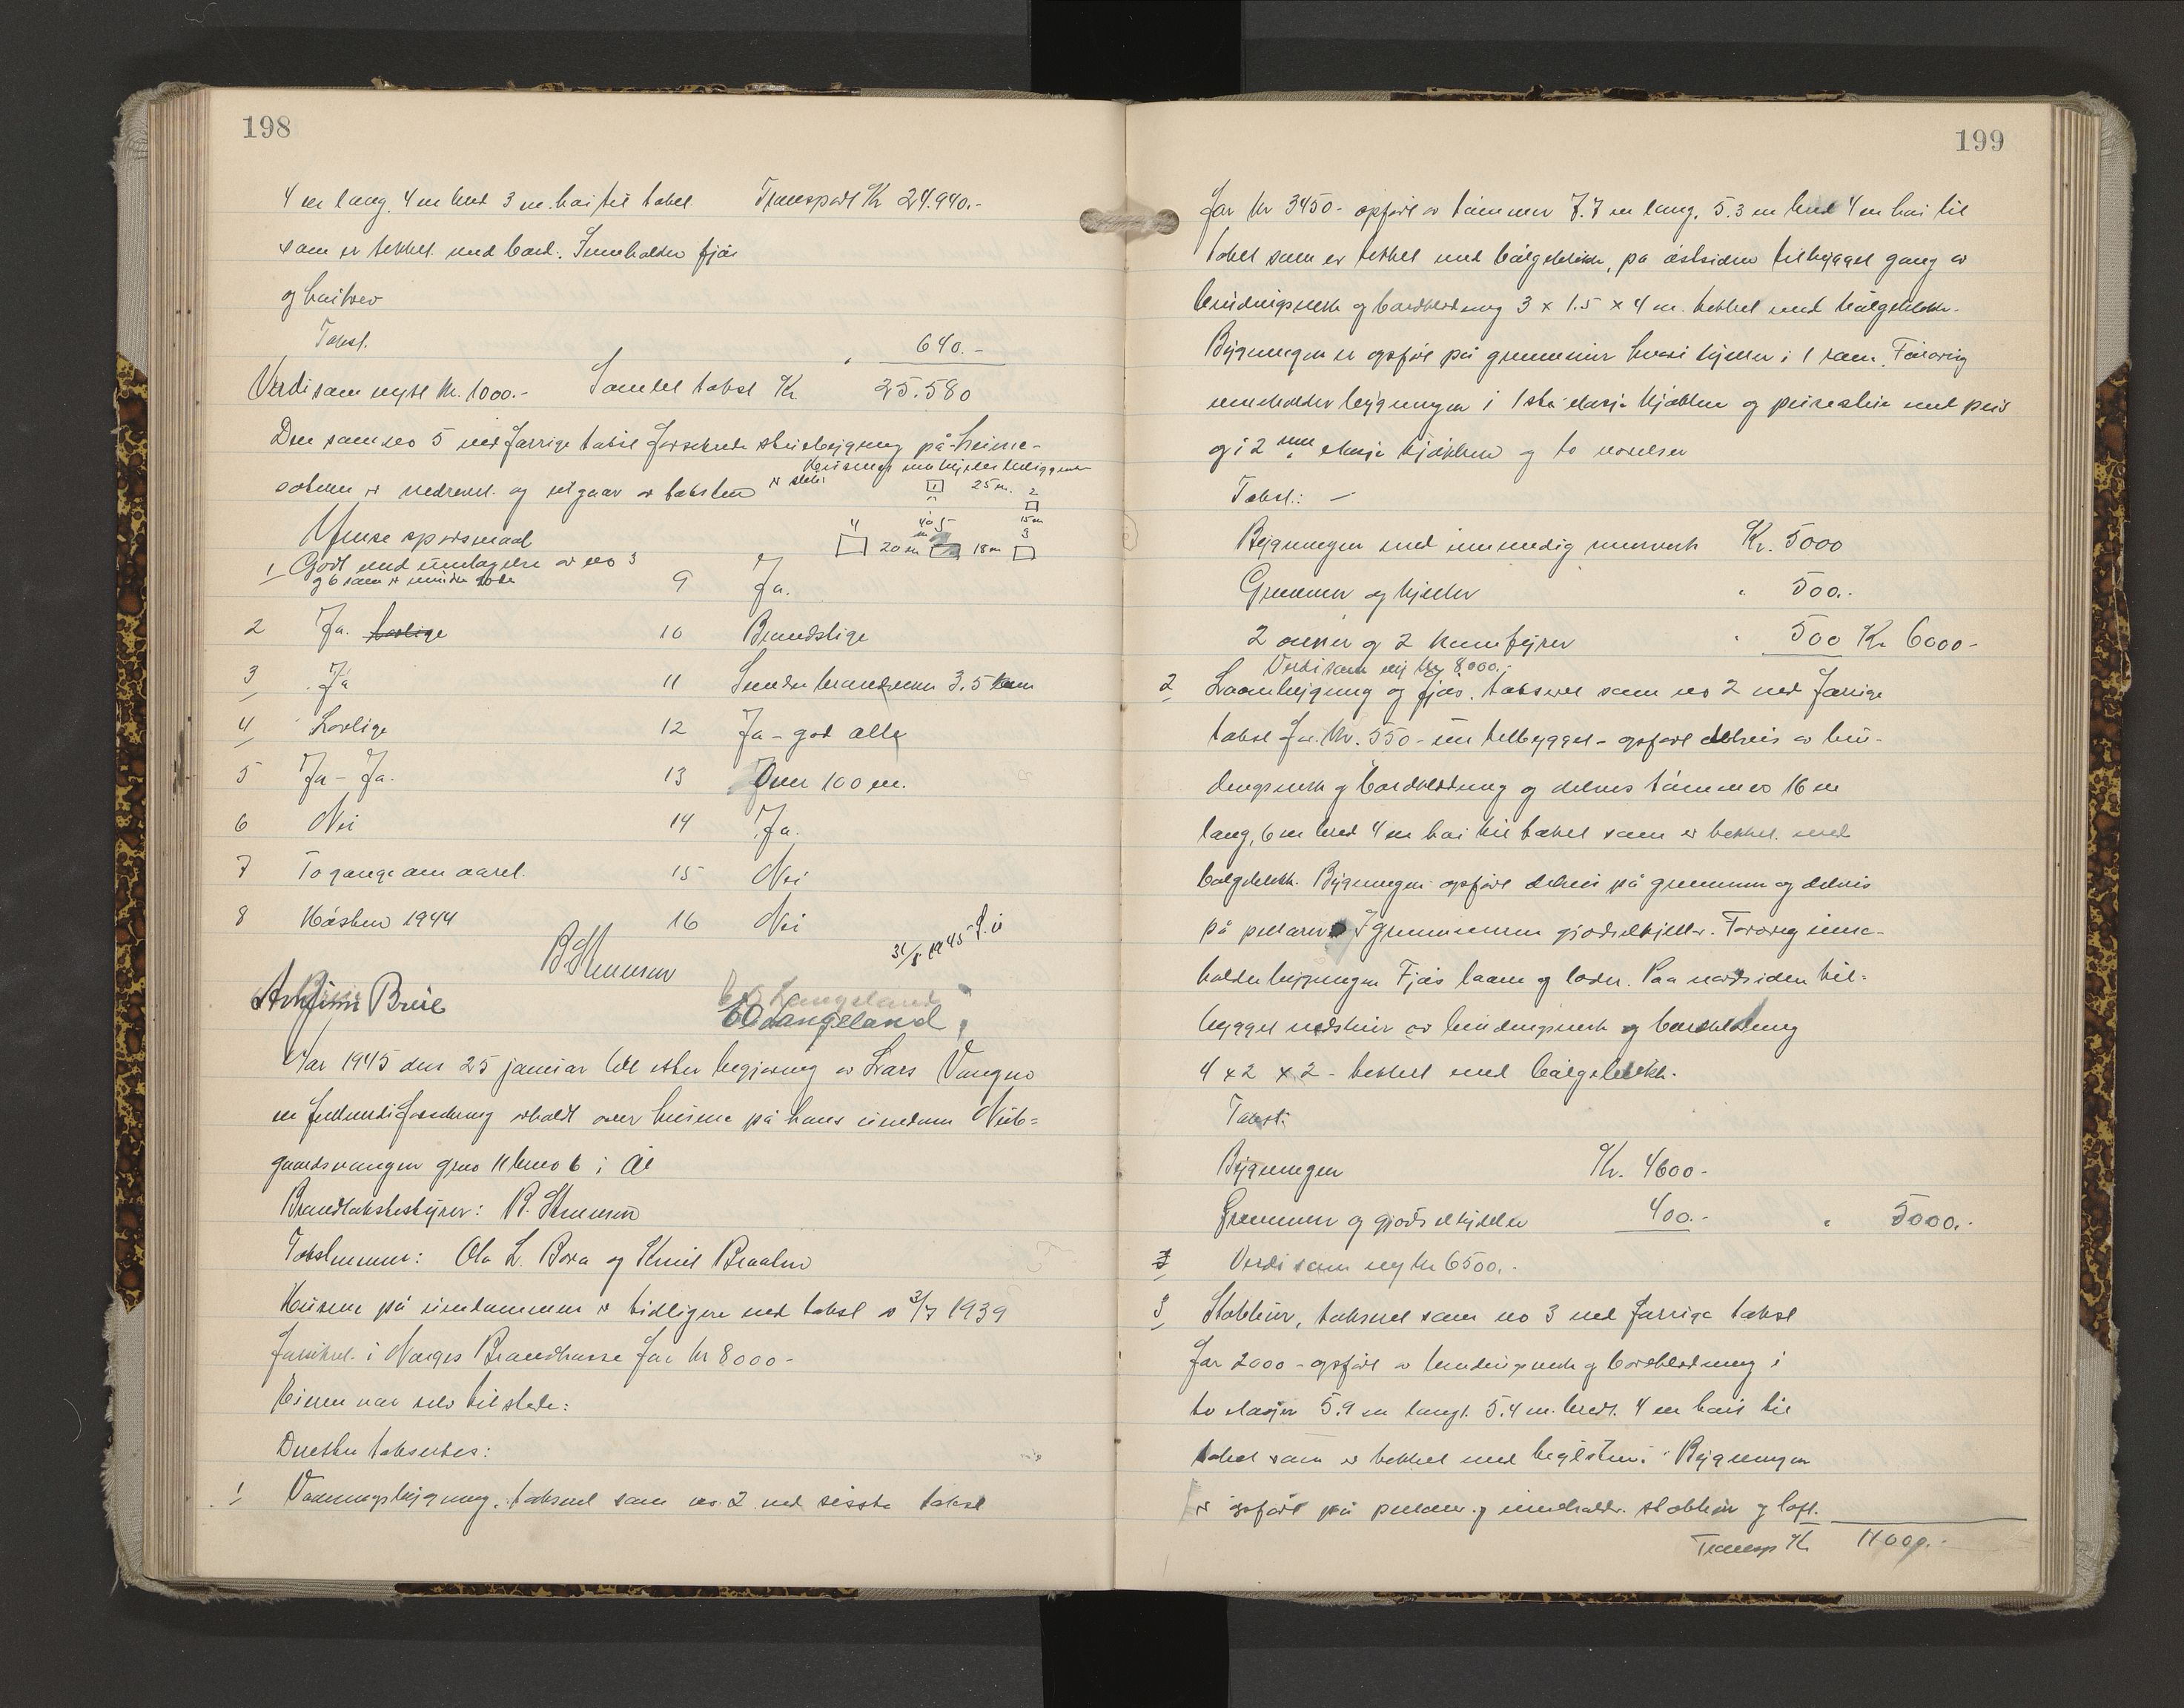 198
4 m lang, 4 m bred 3 m. høi til taket Transport Kr 24.940.-
som er tekket med bord. Inneholder fjøs
og høitrev
Takst. " 640.-
Verdi som nytt kr. 1000.- Samlet takst Kr 25.580
Den som no 5 ved forrige takst forsikrede skuebygning på heime-
Husenes innbyrdes beliggenhet
er slik:
støten er nedrevet og utgaar av taksten
1 25 m. 2
15 m
4 20 m 5 18 m 3
Ymse spørsmaal
1 Godt med undtagelse av no 3
og 6 som er mindre gode
9 Ja.
2 Ja. 10 Brandstige
3 Ja 11 Sundre brandvern 3.5 km
4 Lovlige 12 Ja - god alle
5 Ja - Ja. 13 Over 100 m.
6 Nei 14 Ja.
7 To gange om aaret. 15 Nei
8 Høsten 1944 16 Nei
31/8 1945
Arnfinn Breie
E O Langeland
Aar 1945 den 25 januar ble etter begjæring av Lars Vangno
en fullverdiforsikring avholdt over husene på hans eiendom Nub-
gaardsvangen gno 11 bno 6 i Ål
Brandtakstbestyrer:
Takstmenn: Ola L. Bora og Knut Braaten
Husene på eiendommen er tidligere ved takst av 3/7 1939
forsikret i Norges Brandkasse for kr 8000-
Eieren var selv tilstede:
Deretter takseretes:
1 Vaaningsbygning, taksert som no. 2 ved sisste takst
199
for kr 3450- opført av tømmer 7.7 m lang, 5.3 m bred 4 m høi til
taket som er tekket med bølgeblikk, på østsiden tilbygget gang av
bindingsverk og bordkledning 3 x 1.5 x 4 m. tekket med bølgeblikk.
Bygningen er opført på grunnmur hvori kjeller i 1 rom. Forøvrig
inneholder bygningen i 1ste etasje kjøkken og peisestue med peis
og i 2 nen etasje kjøkken og to værelser
Takst: -
Bygningen med innvendig murverk Kr. 5000
Grunnmur og kjeller " 500.-
2 ovner og 2 komfyrer " 500 Kr 6000-
Verdi som ny kr 8000.-
2 Laavebygning og fjøs, taksert som no 2 ved forrige
takst for kr. 550- nu tilbygget - opført delvis av bin-
dingsverk og bordkledning og delvis tømmer 16 m
lang, 6 m bred 4 m høi til taket som er tekket med
bølgeblikk. Bygningen opført delvis på grunnmur og delvis
på pillarer. I grunnmuren gjødselkjeller. Forøvrig inne-
holder bygningen Fjøs laave og loder. Paa nordsiden til-
bygget vedskur av bindingsverk og bordkledning
4 x 2 x 2 - tekket med bølgeblikk.
Takst:
Bygningen Kr. 4600-
Grunnmur og gjødselkjeller 400.- " 5000.-
Verdi som ny kr 6500.-
3 Stabbur, taksert som no 3 ved forrige takst
for 2000 - opført av bindingsverk og bordkledning i
to etasjer 5.9 m langt. 5.4 m. bredt. 4 m høit til
taket som er tekket med teglsten. Bygningen
er opført på pillarer og inneholder stabbur og loft.
Transp Kr 11000.-